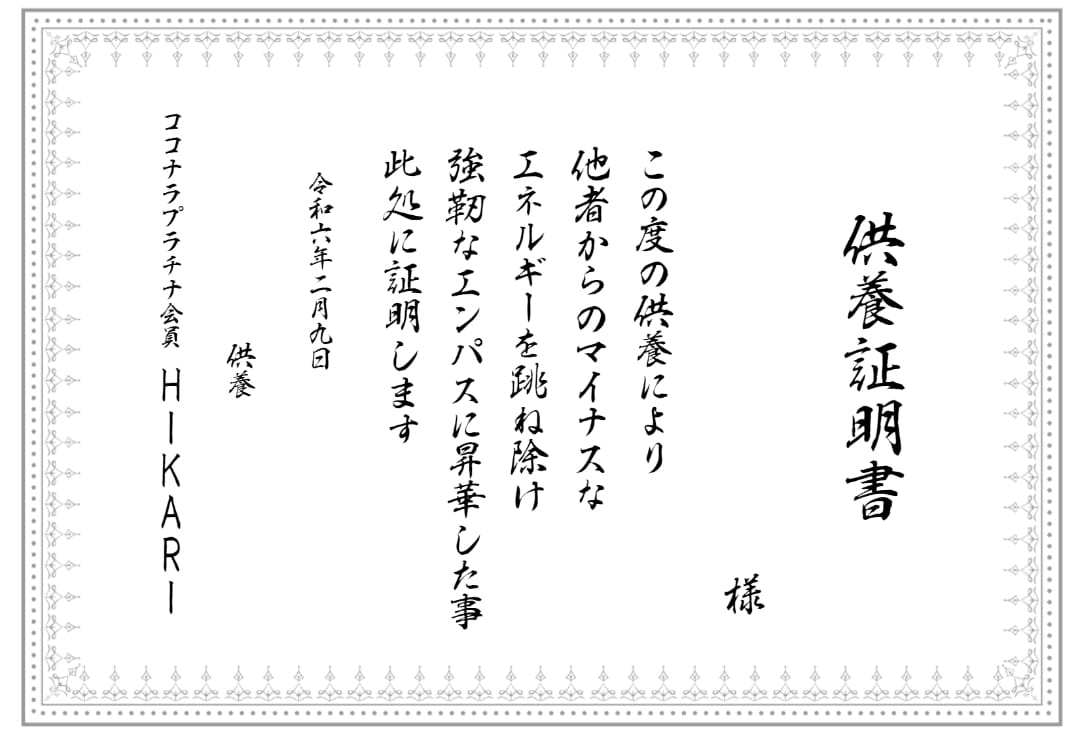 供養証明書
様
この度の供養により
他者からのマイナスな
エネルギーを跳ね除け
強靭なエンパスに昇華した事
此処に証明します
令和六年二月九日
供養
ココナラプラチナ会員 HIKARI